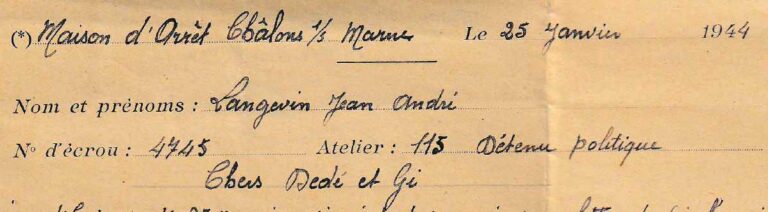 (*) Maison d'Arrêt Châlons s/s Marne Le 25 Janvier 1944
Nom et prénoms : Langevin Jean André
N° d'écrou : 4745 Atelier : 115 Détenu politique
Chers Dedé et Gi